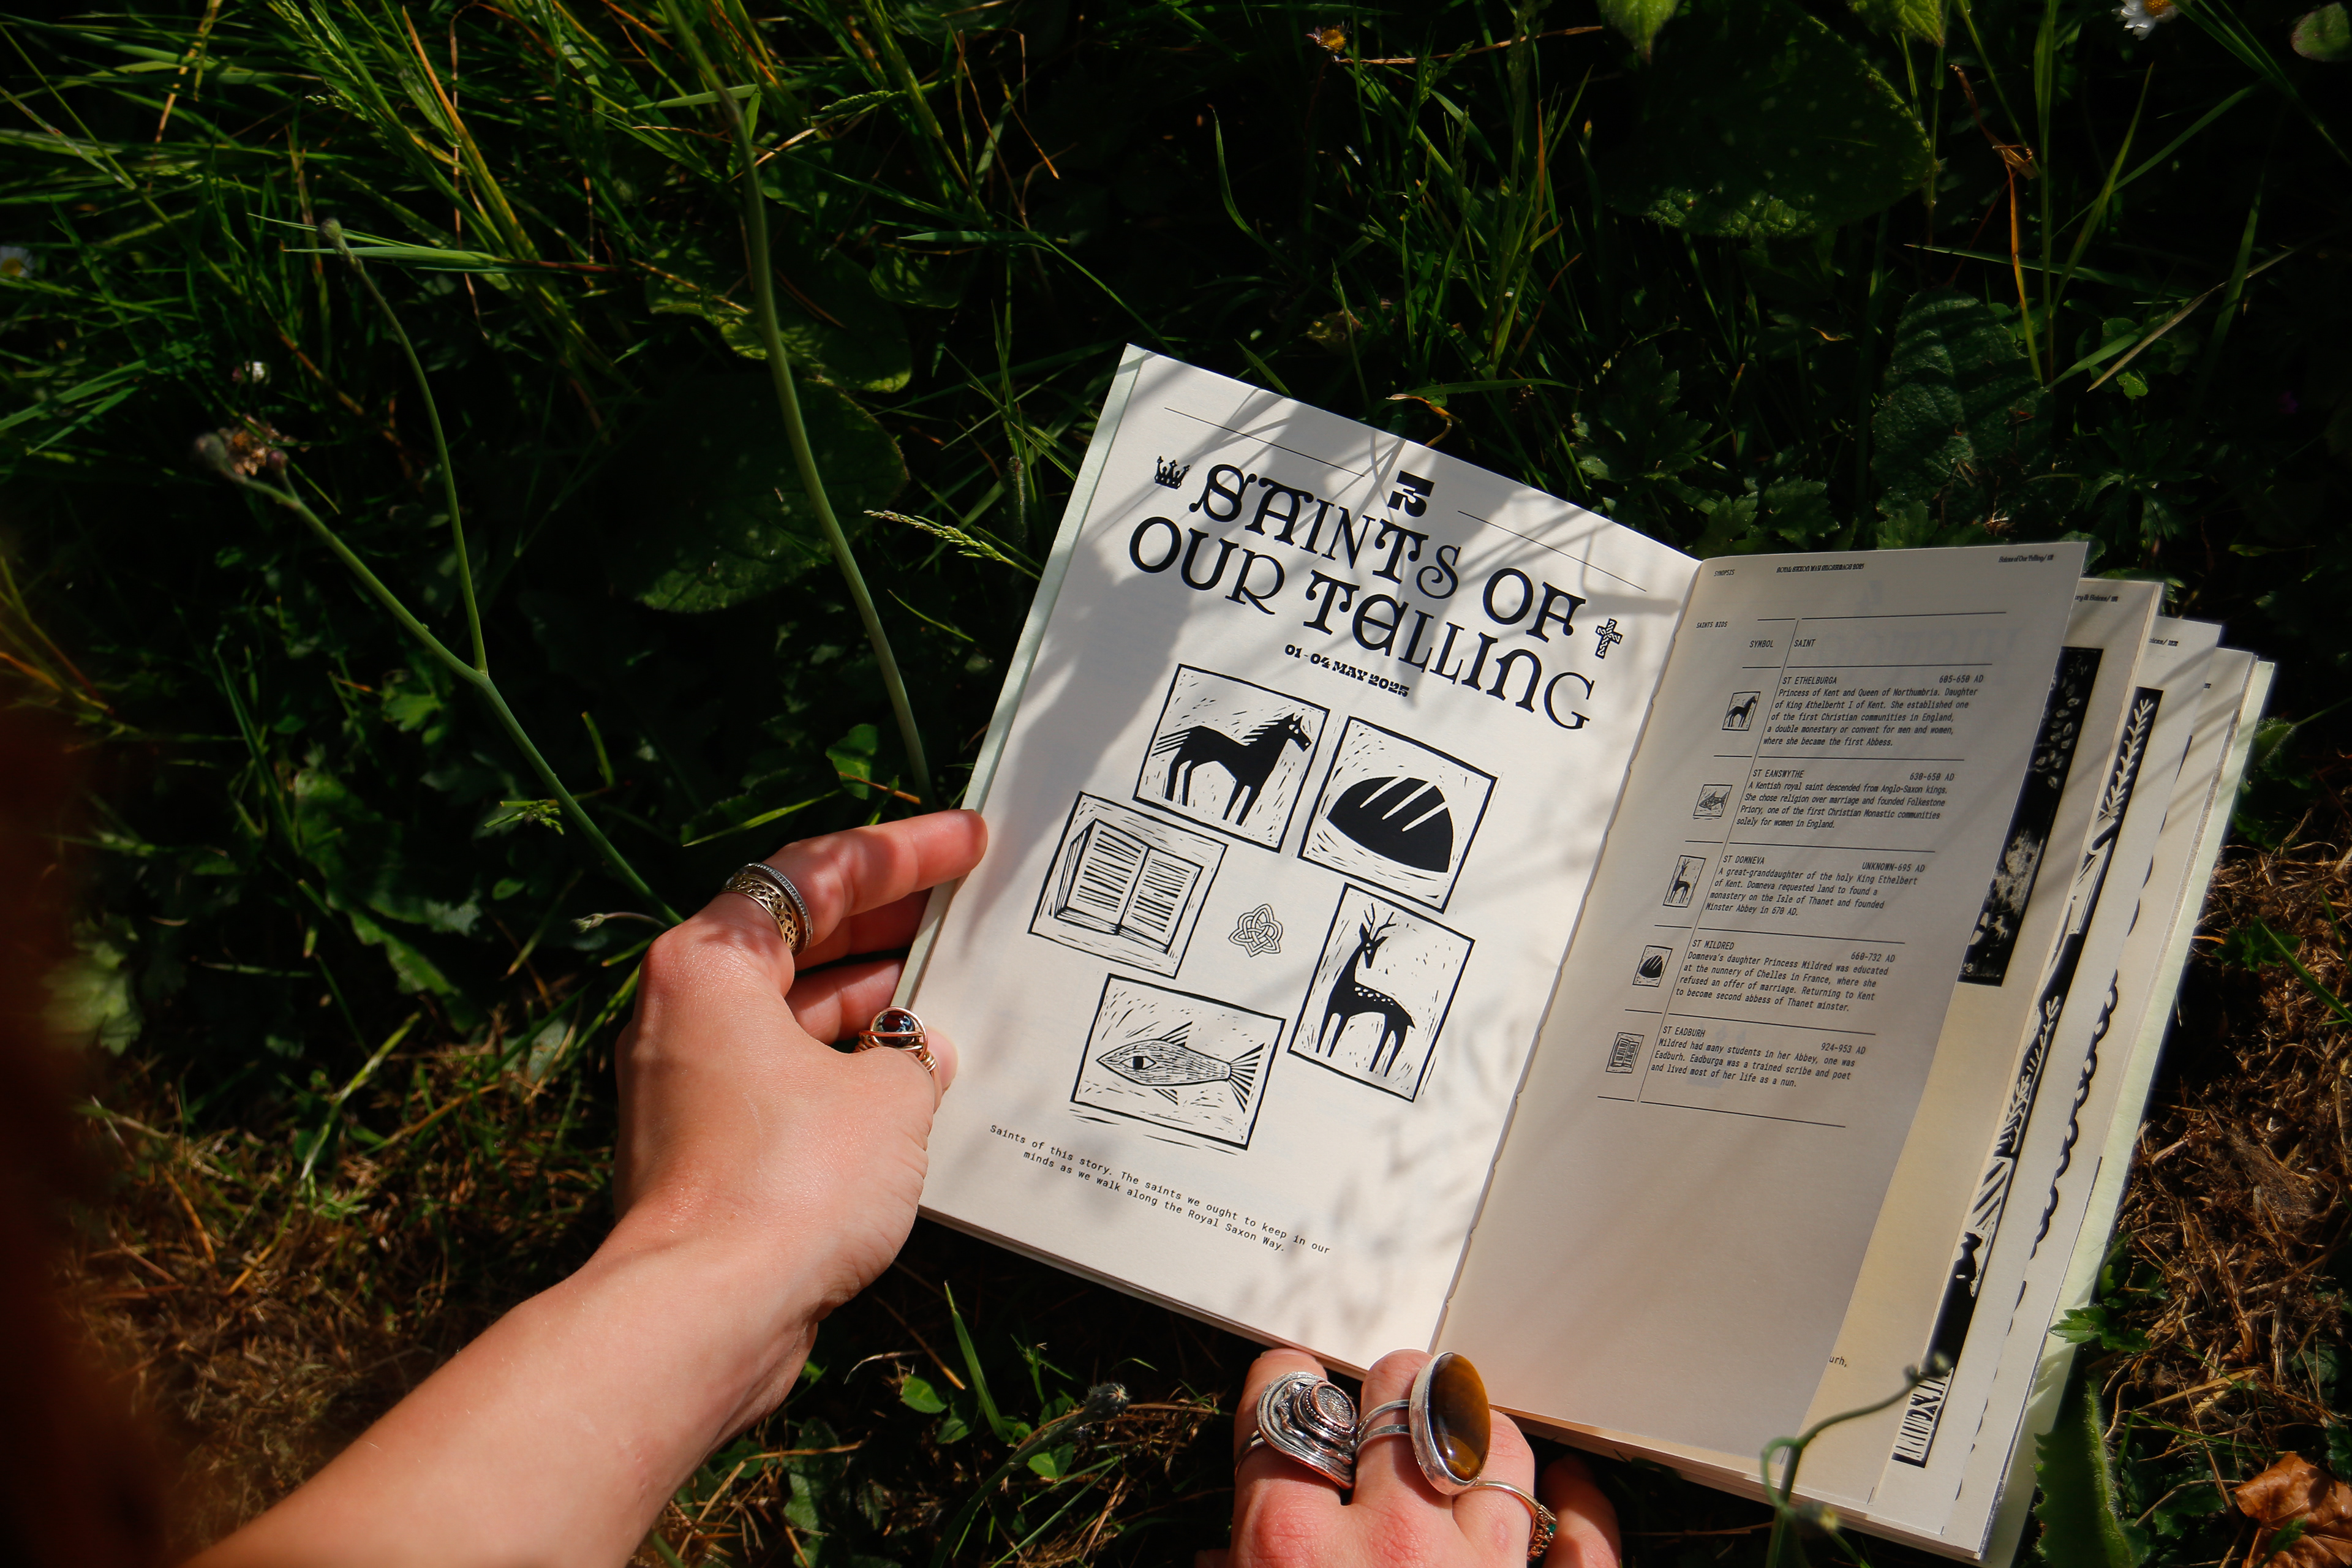 3
SAINTS OF
OUR TELLING
01-04 MAY 2025
Saints of this story. The saints we ought to keep in our
minds as we walk along the Royal Saxon Way.
SYNOPSIS
ROYAL SAXON WAY PILGRIMAGE 2025
SAINTS BIOS
SYMBOL
SAINT
ST ETHELBURGA
605-650 AD
Princess of Kent and Queen of Northumbria. Daughter
of King Æthelberht I of Kent. She established one
of the first Christian communities in England,
a double monestary or convent for men and women,
where she became the first Abbess.
ST EANSWYTHE
630-650 AD
A Kentish royal saint descended from Anglo-Saxon kings.
She chose religion over marriage and founded Folkestone
Priory, one of the first Christian Monastic communities
solely for women in England.
ST DOMNEVA
UNKNOWN-695 AD
A great-granddaughter of the holy King Ethelbert
of Kent. Domneva requested land to found a
monastery on the Isle of Thanet and founded
Minster Abbey in 670 AD.
ST MILDRED
660-732 AD
Domneva's daughter Princess Mildred was educated
at the nunnery of Chelles in France, where she
refused an offer of marriage. Returning to Kent
to become second abbess of Thanet minster.
ST EADBURH
924-953 AD
Mildred had many students in her Abbey, one was
Eadburh. Eadburga was a trained scribe and poet
and lived most of her life as a nun.
urh,